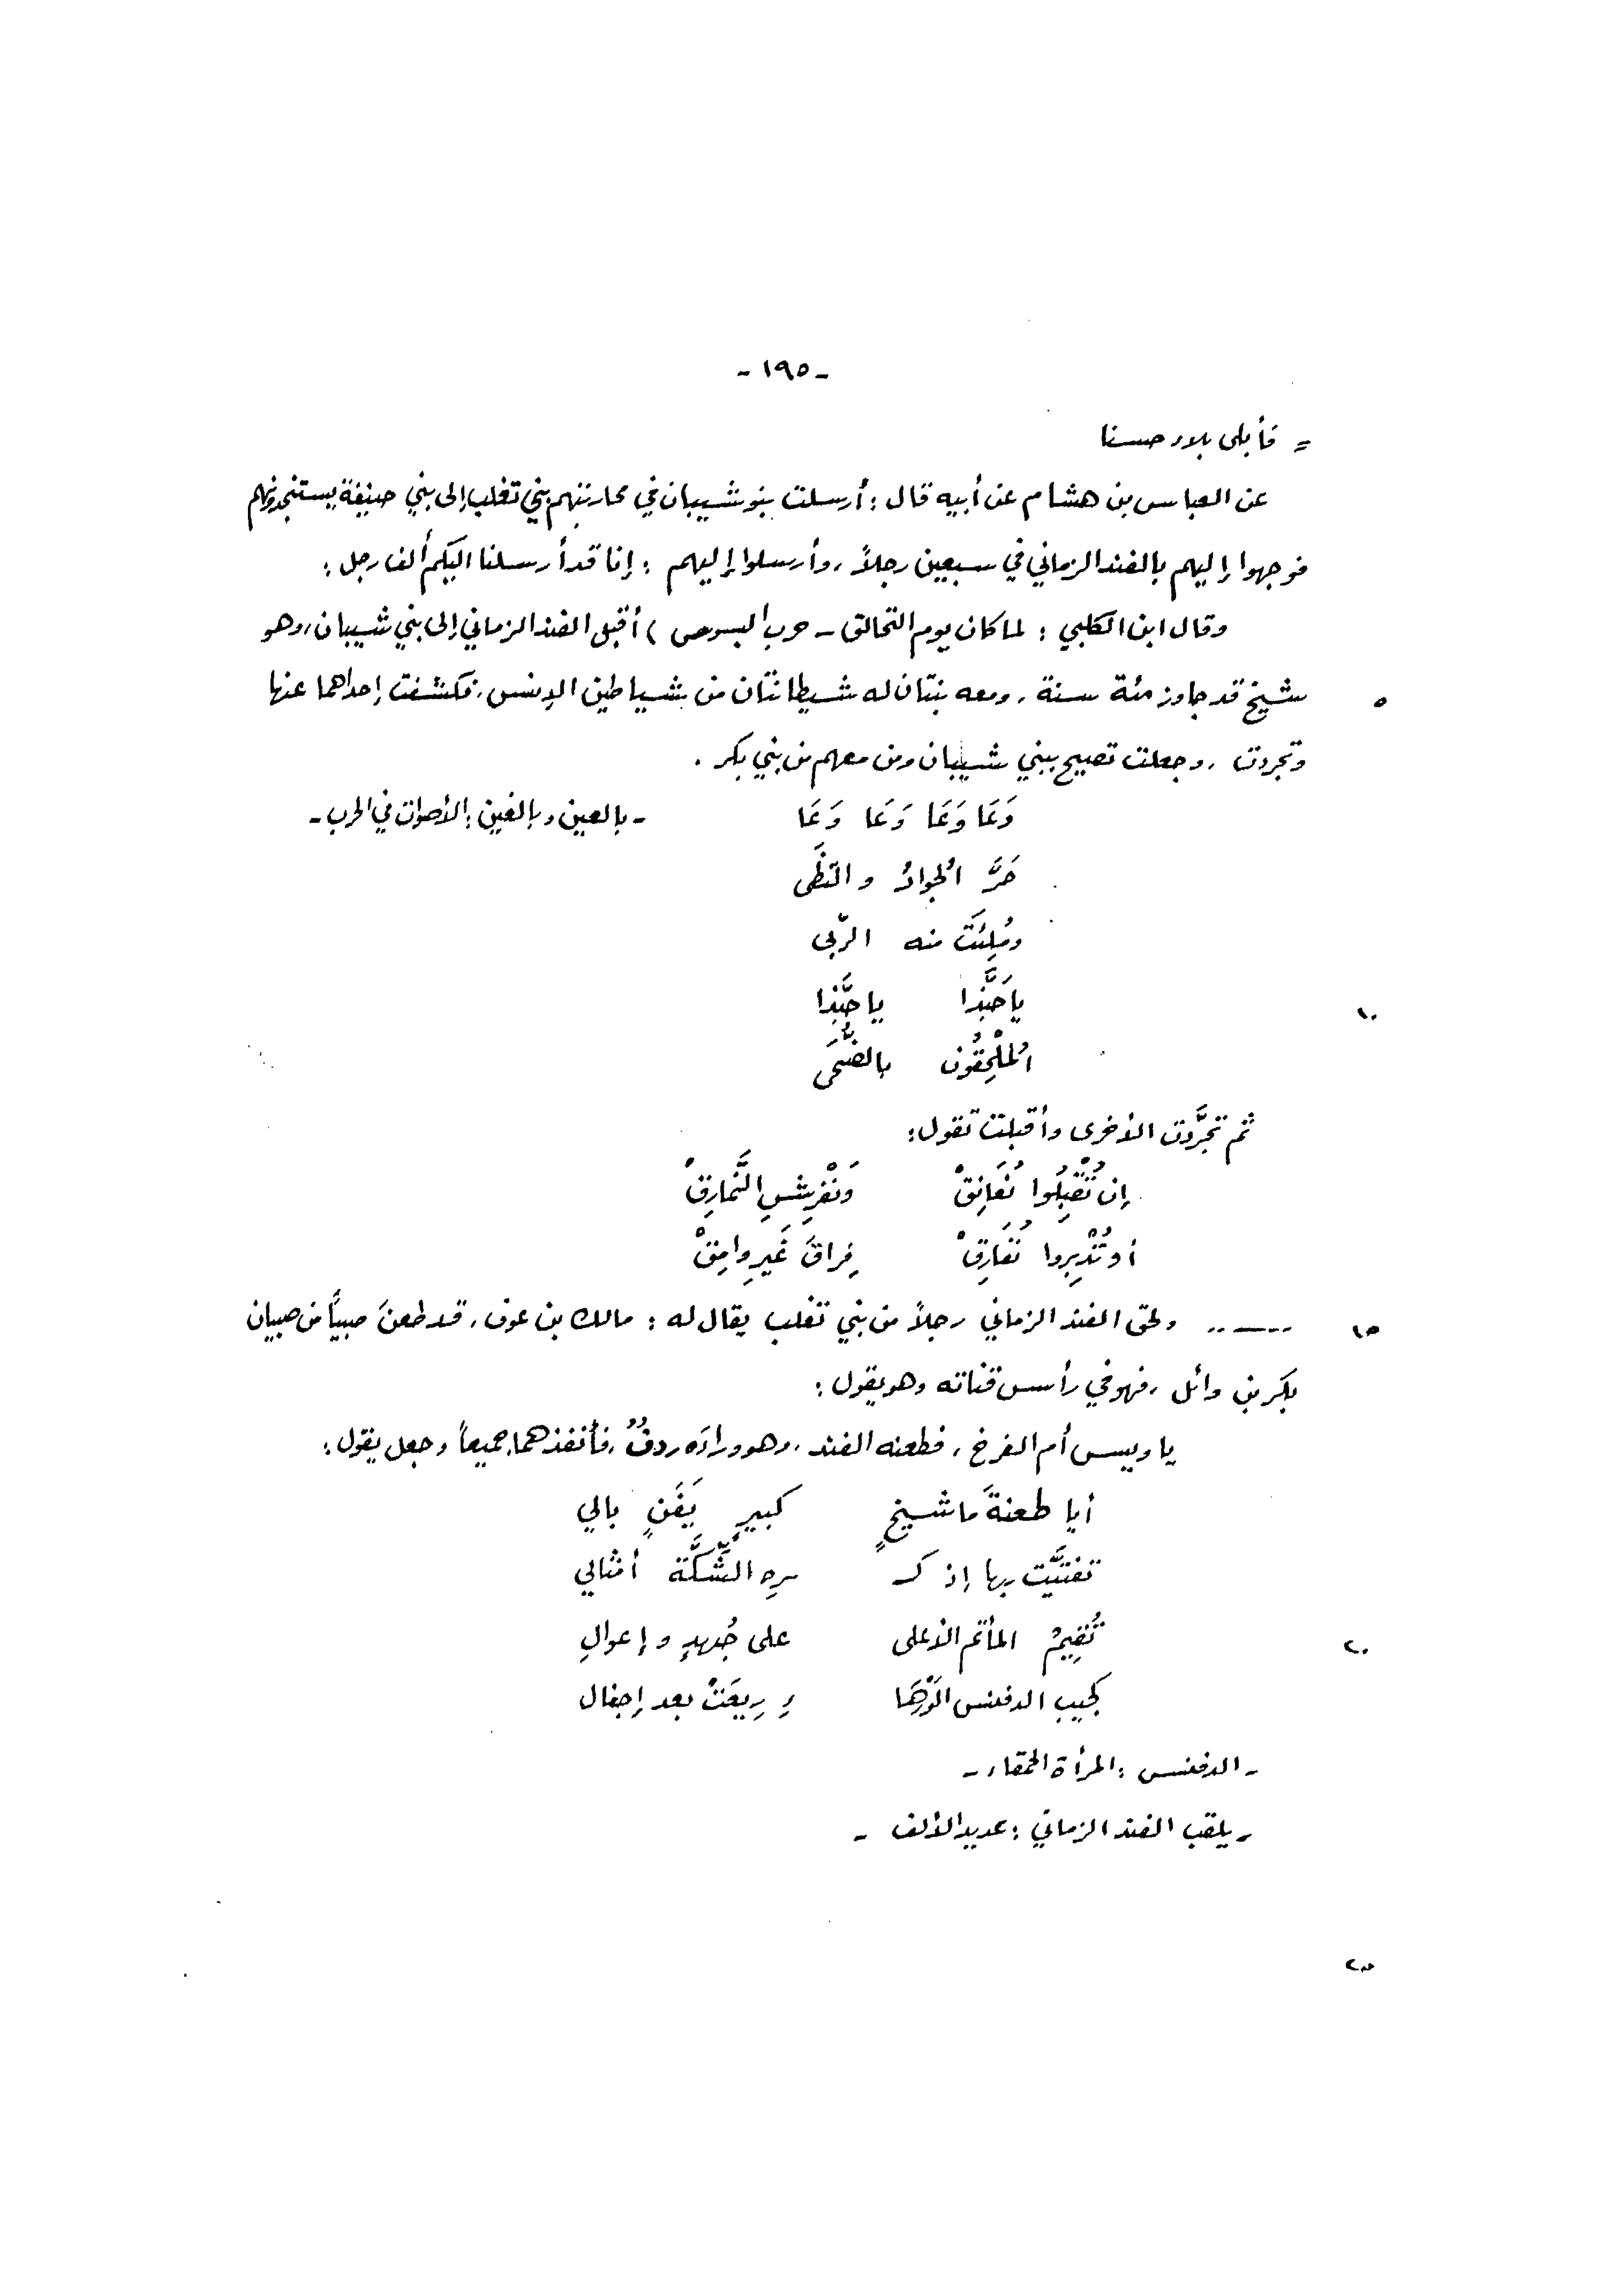 - ١٩٥ -
= فأبلى بلاء حسنا
عن العباس بن هشام عن أبيه قال : أرسلت بنو شيبان في محاربتهم بني تغلب إلى بني حنيفة يستنجدونهم
فوجهوا إليهم بالفند الزماني في سبعين رجلاً ، وأرسلوا إليهم : إنا قد أرسلنا إليكم ألف رجل :
وقال ابن الكلبي : لما كان يوم التحالق - حرب البسوس ) أقبل الفند الزماني إلى بني شيبان ، وهو
٥ شيخ قد جاوز مئة سنة ، ومعه بنتان له شيطانتان من شياطين الإنس ، فكشفت إحداهما عنها
وتجردت ، وجعلت تصيح ببني شيبان ومن معهم من بني بكر .
وَعَا وَعَا وَعَا وَعَا - بالعين وبالغين : الأصوات في الحرب -
حَرَّ الجوادُ و التظَى
ومُلِئَتَ منه الرّبى
١٠ يا حَبَّذا يا حبَّذا
المُلْحِقُون بالضُّحَى
ثم تجرَّدت الأخرى وأقبلت تقول :
إن تُقْبِلُوا نُعَانِقْ وَنَفْرِشِ النَّمارِقْ
أو تُدْبِروا نُفَارِقْ فِراقَ غَيرِ وامِقْ
١٥ ولحق الفند الزماني رجلاً من بني تغلب يقال له : مالك بن عوف ، قد طعنَ صبياً من صبيان
بكر بن وائل ، فهو في رأس قناته وهو يقول :
يا ويس أم الفرخ ، فطعنه الفند ، وهو وراءه ردفٌ ، فأنفذهما جميعاً وجعل يقول :
أيا طعنةَ ما شيخٍ كبيرٍ يَفَنٍ بالي
تفتيَّت بها إذ كـ ـره الشِّكَّةَ أمثالي
٢٠ تُقِيمُ المأتم الأعلى على جُهدٍ و إعوالِ
كجيب الدفنس الوَرْهَا ءِ رِيعَتْ بعد إجفال
- الدفنس : المرأة الحمقاء -
- يلقب الفند الزماني : عديد الألف -
٢٥